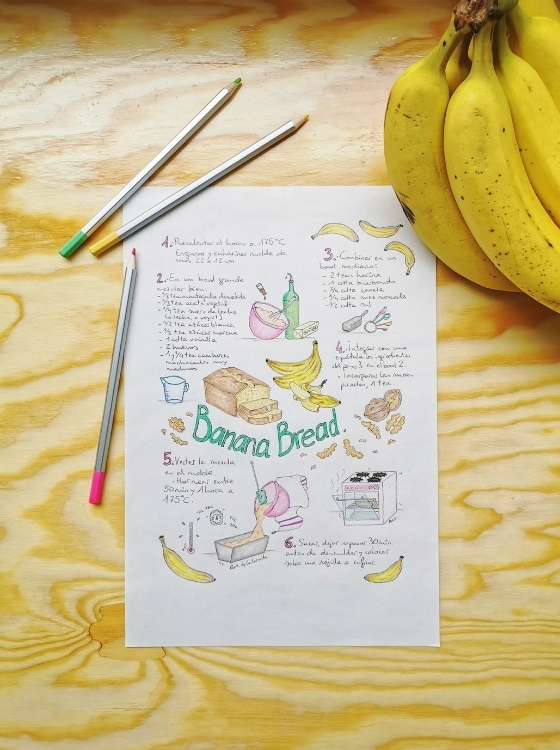 1. Precalentar el horno a 175°C
Engrasar y enharinar molde de
unos 22 x 12 cm.
2. En un bowl grande
mezclar bien:
- 1/2 tza mantequilla derretida
- 1/3 tza aceite vegetal
- 1/2 tza azúcar blanca
- 1/2 tza azúcar morena
- 1 cdta vainilla
- 2 huevos
- 1 y 1/4 tza cambures
machacados muy
maduros
3. Combinar en un
bowl mediano:
- 2 tzas harina
- 1 cdta bicarbonato
- 3/4 cdta canela
- 1/4 cdta nuez moscada
- 1/2 cdta sal
4. Integrar con una
espátula los ingredientes
del paso 3 en el bowl 2.
- Incorporar las nueces
picadas, 1 tza.
Banana Bread.
5. Verter la mezcla
en el molde
- Hornear entre
50 min y 1 hora a
175°C.
6. Sacar, dejar reposar 30 min.
antes de desmoldar y colocar
sobre una rejilla a enfriar.